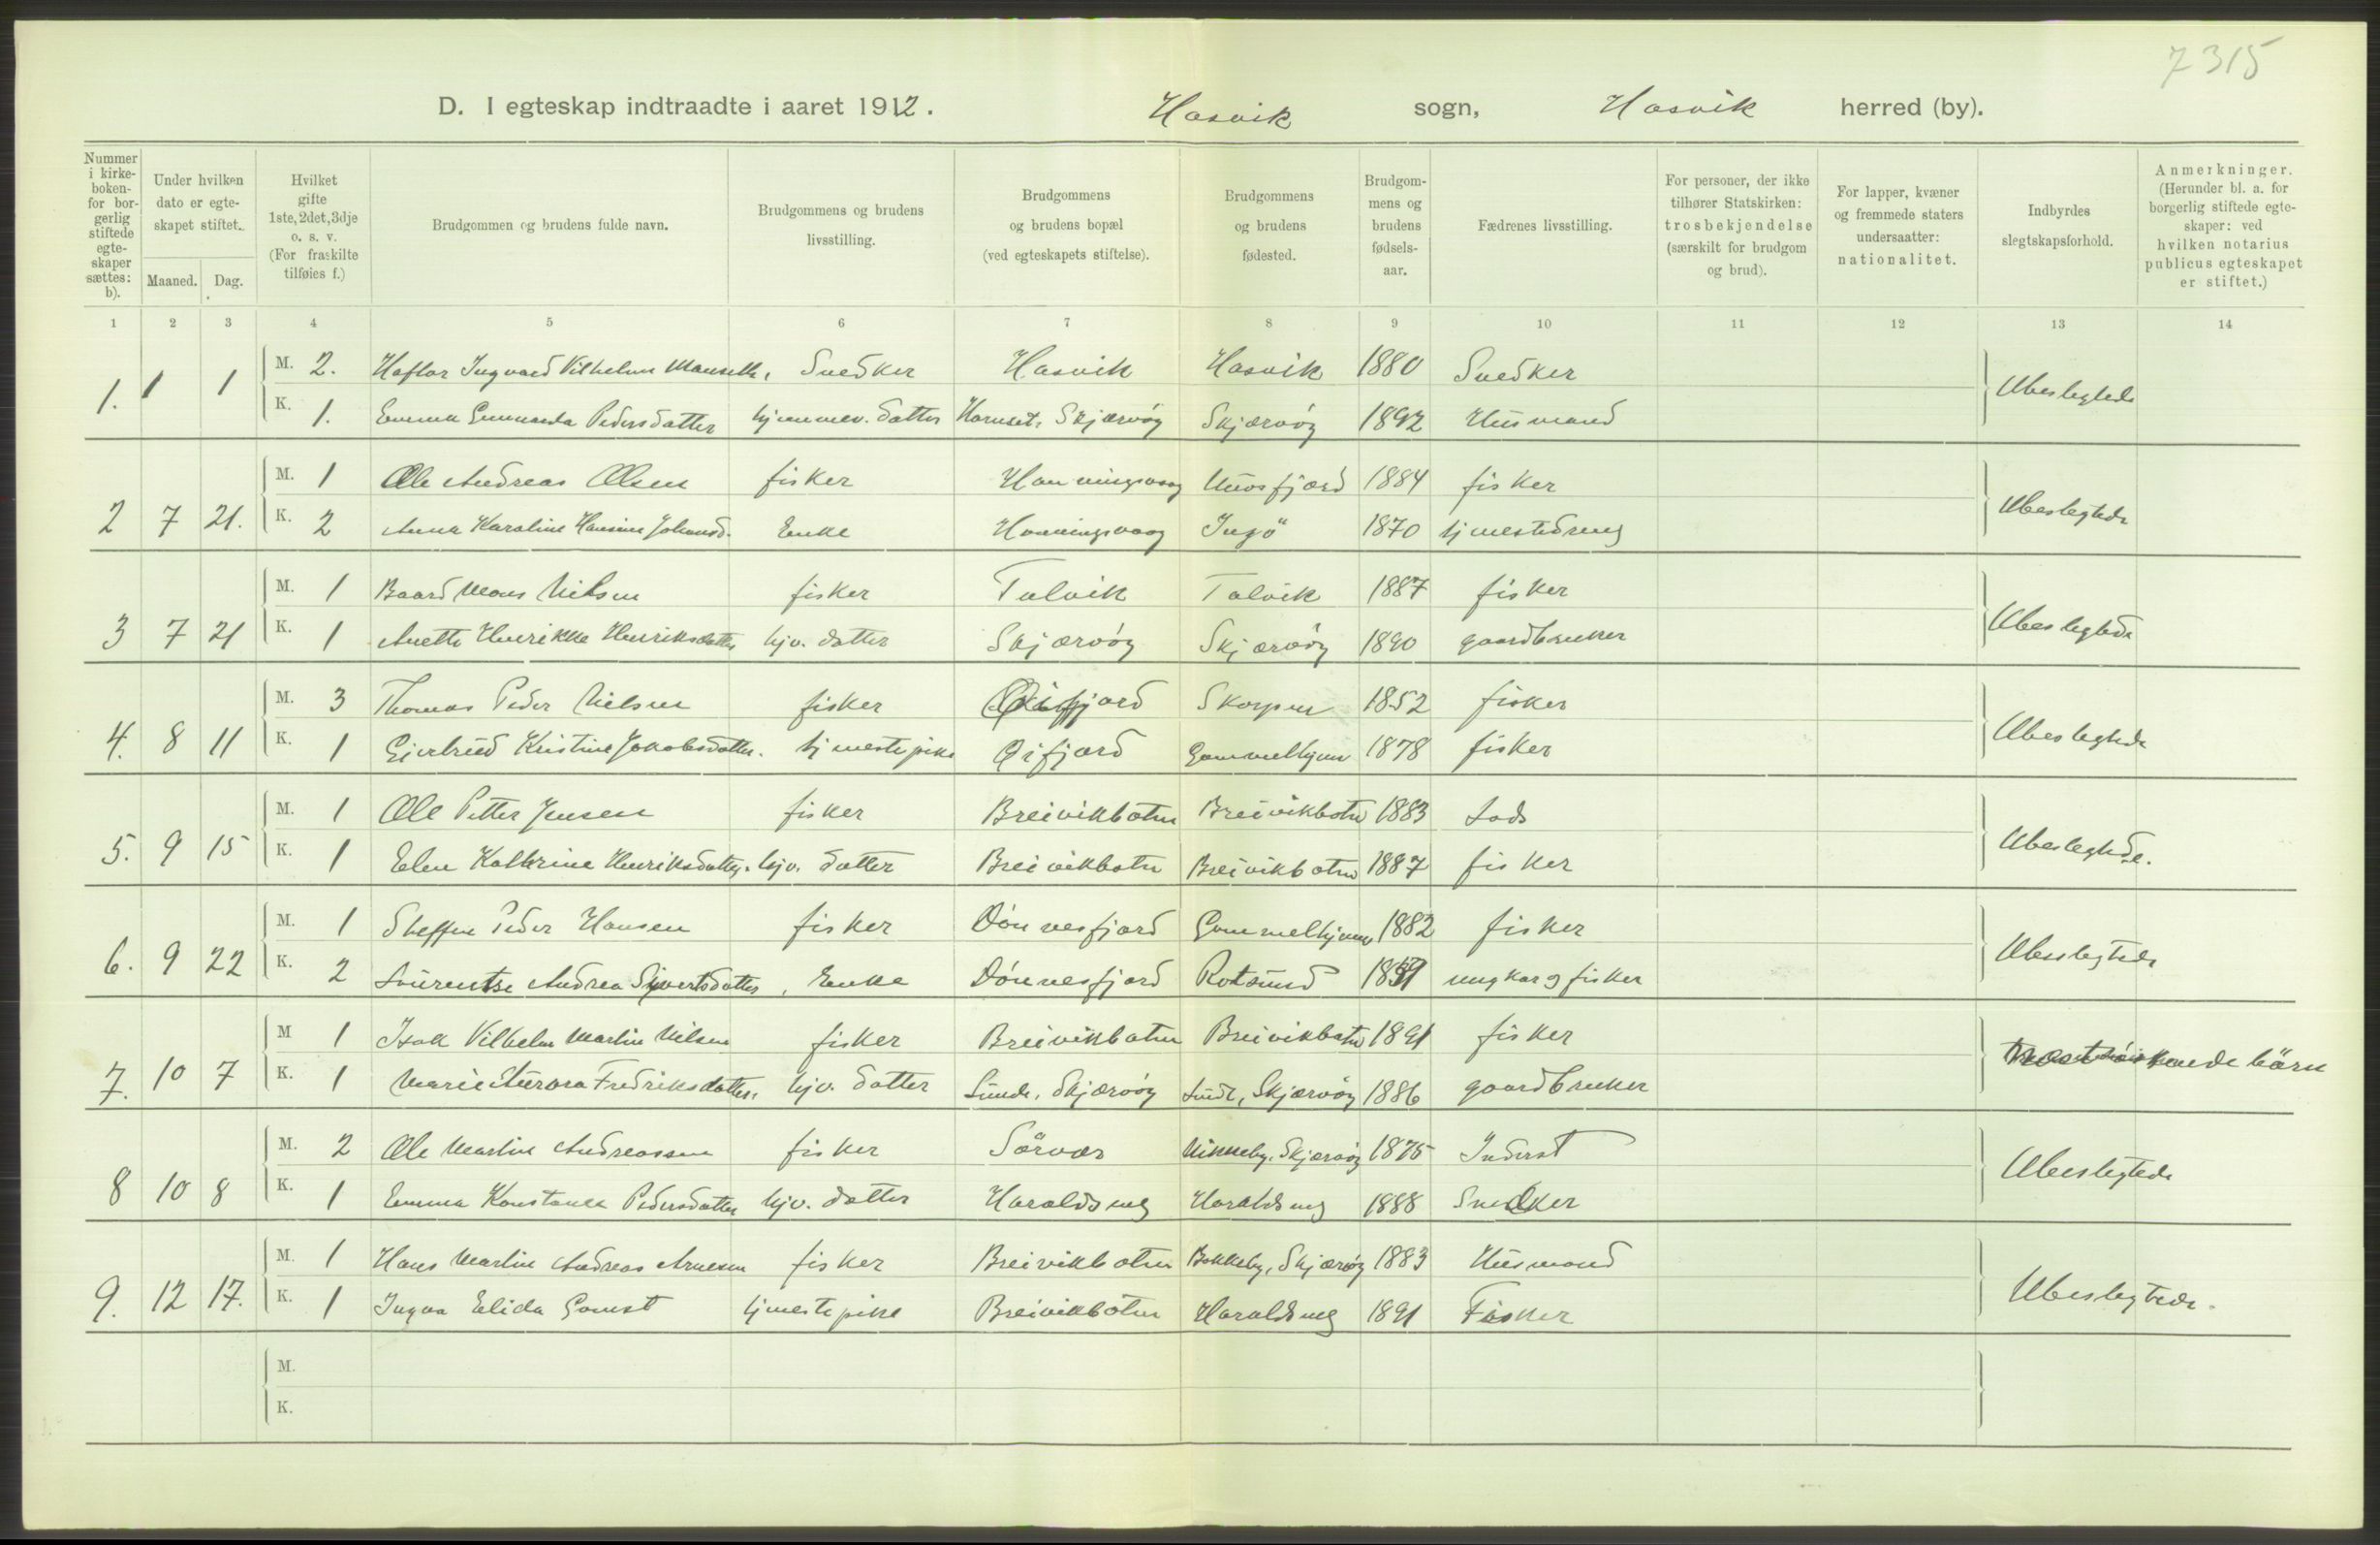 7315
D. I egteskap indtraadte i aaret 1912. Hasvik sogn, Hasvik herred (by).
Nummer i kirke-boken- for bor-gerlig stiftede egte-skaper sættes: b).
Under hvilken dato er egte-skapet stiftet.
Maaned. Dag.
Hvilket gifte 1ste, 2det, 3dje o. s. v. (For fraskilte tilføies f.)
Brudgommen og brudens fulde navn.
Brudgommens og brudens livsstilling.
Brudgommens og brudens bopæl (ved egteskapets stiftelse).
Brudgommens og brudens fødested.
Brudgom-mens og brudens fødsels-aar.
Fædrenes livsstilling.
For personer, der ikke tilhører Statskirken: trosbekjendelse (særskilt for brudgom og brud).
For lapper, kvæner og fremmede staters undersaatter: nationalitet.
Indbyrdes slegtskapsforhold.
Anmerkninger. (Herunder bl. a. for borgerlig stiftede egte-skaper: ved hvilken notarius publicus egteskapet er stiftet.)
1 2 3 4 5 6 7 8 9 10 11 12 13 14
1. 1 1 M. 2. Haflor Ingvard Vilhelm Snedker Hasvik Hasvik 1880 Snedker Ubeslegtede
K. 1. Emma Pedersdatter hjemmev. datter Skjærvöy Skjærvöy 1892 Husmand
2 7 21. M. 1 Ole Andreas Olsen fisker Honningsvaag 1884 fisker Ubeslegtede
K. 2 Anna Karoline Hansine Johansd. Enke Honningsvaag Ingö 1870 tjenestedreng
3 7 21 M. 1 Baard Mons Nilsen fisker Talvik Talvik 1887 fisker Ubeslegtede
K. 1 Anette Henrikke Henriksdatter hjv. datter Skjærvöy Skjærvöy 1890 gaardbruker
4. 8 11 M. 3 Thomas Peder Nilsen fisker Öifjord Skorpen 1852 fisker Ubeslegtede
K. 1 Gjertrud Kristine Jakobsdatter. tjenestepike Öifjord Gammelhjem 1878 fisker
5. 9 15 M. 1 Ole Petter Jensen fisker Breivikbotn Breivikbotn 1883 Lods Ubeslegtede.
K. 1 Elen Kathrine Henriksdatter. hjv. datter Breivikbotn Breivikbotn 1887 fisker
6. 9 22 M. 1 Steffen Peder Hansen fisker Dönnesfjord Gammelhjem 1882 fisker Ubeslegtede
K. 2 Laurentse Andrea Sivertsdatter, Enke Dönnesfjord Rotsund ungkar g fisker
7. 10 7 M 1 Isak Vilhelm Martin Nilsen fisker Breivikbotn Breivikbotn 1891 fisker Næstsöskendebörn
K. 1 Marie Aurora Fredriksdatter, hjv. datter Sunde, Skjærvöy Sunde, Skjærvöy 1886 gaardbruker
8 10 8 M. 2 Ole Martin Andreassen fisker Sörvær Nikkeby, Skjærvöy 1875 Inderst Ubeslegtede
K. 1 Emma Konstanse Pedersdatter hjv. datter Haraldseng Haraldseng 1888 Snedker
9. 12 17. M. 1 Hans Martin Andreas Arnesen fisker Breivikbotn Bakkeby, Skjærvöy 1883 Husmand Ubeslegtede.
K. 1 Ingva Elida Gamst tjenestepike Breivikbotn Haraldseng 1891 Fisker
M.
K.